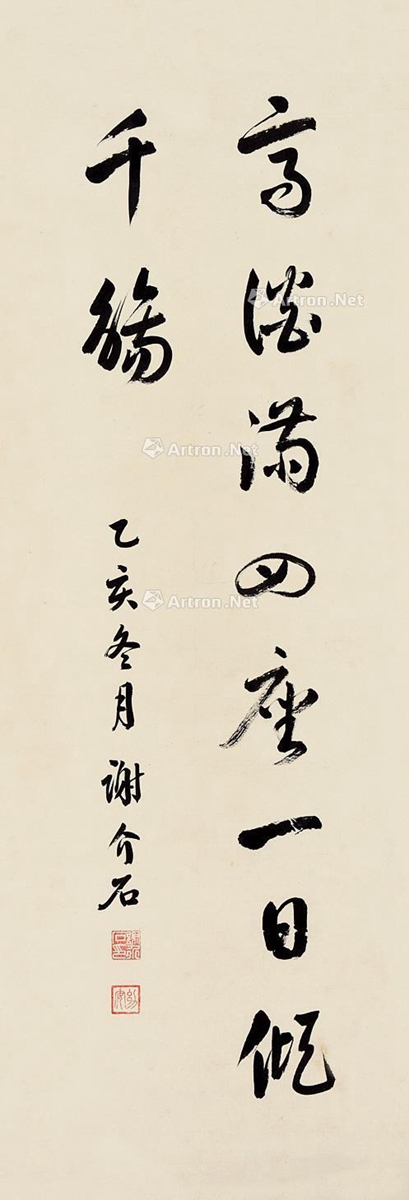 高谈满四座一日倾
千觞
乙亥冬月 谢介石
Artron.Net
Artron.Net
Artron.Net